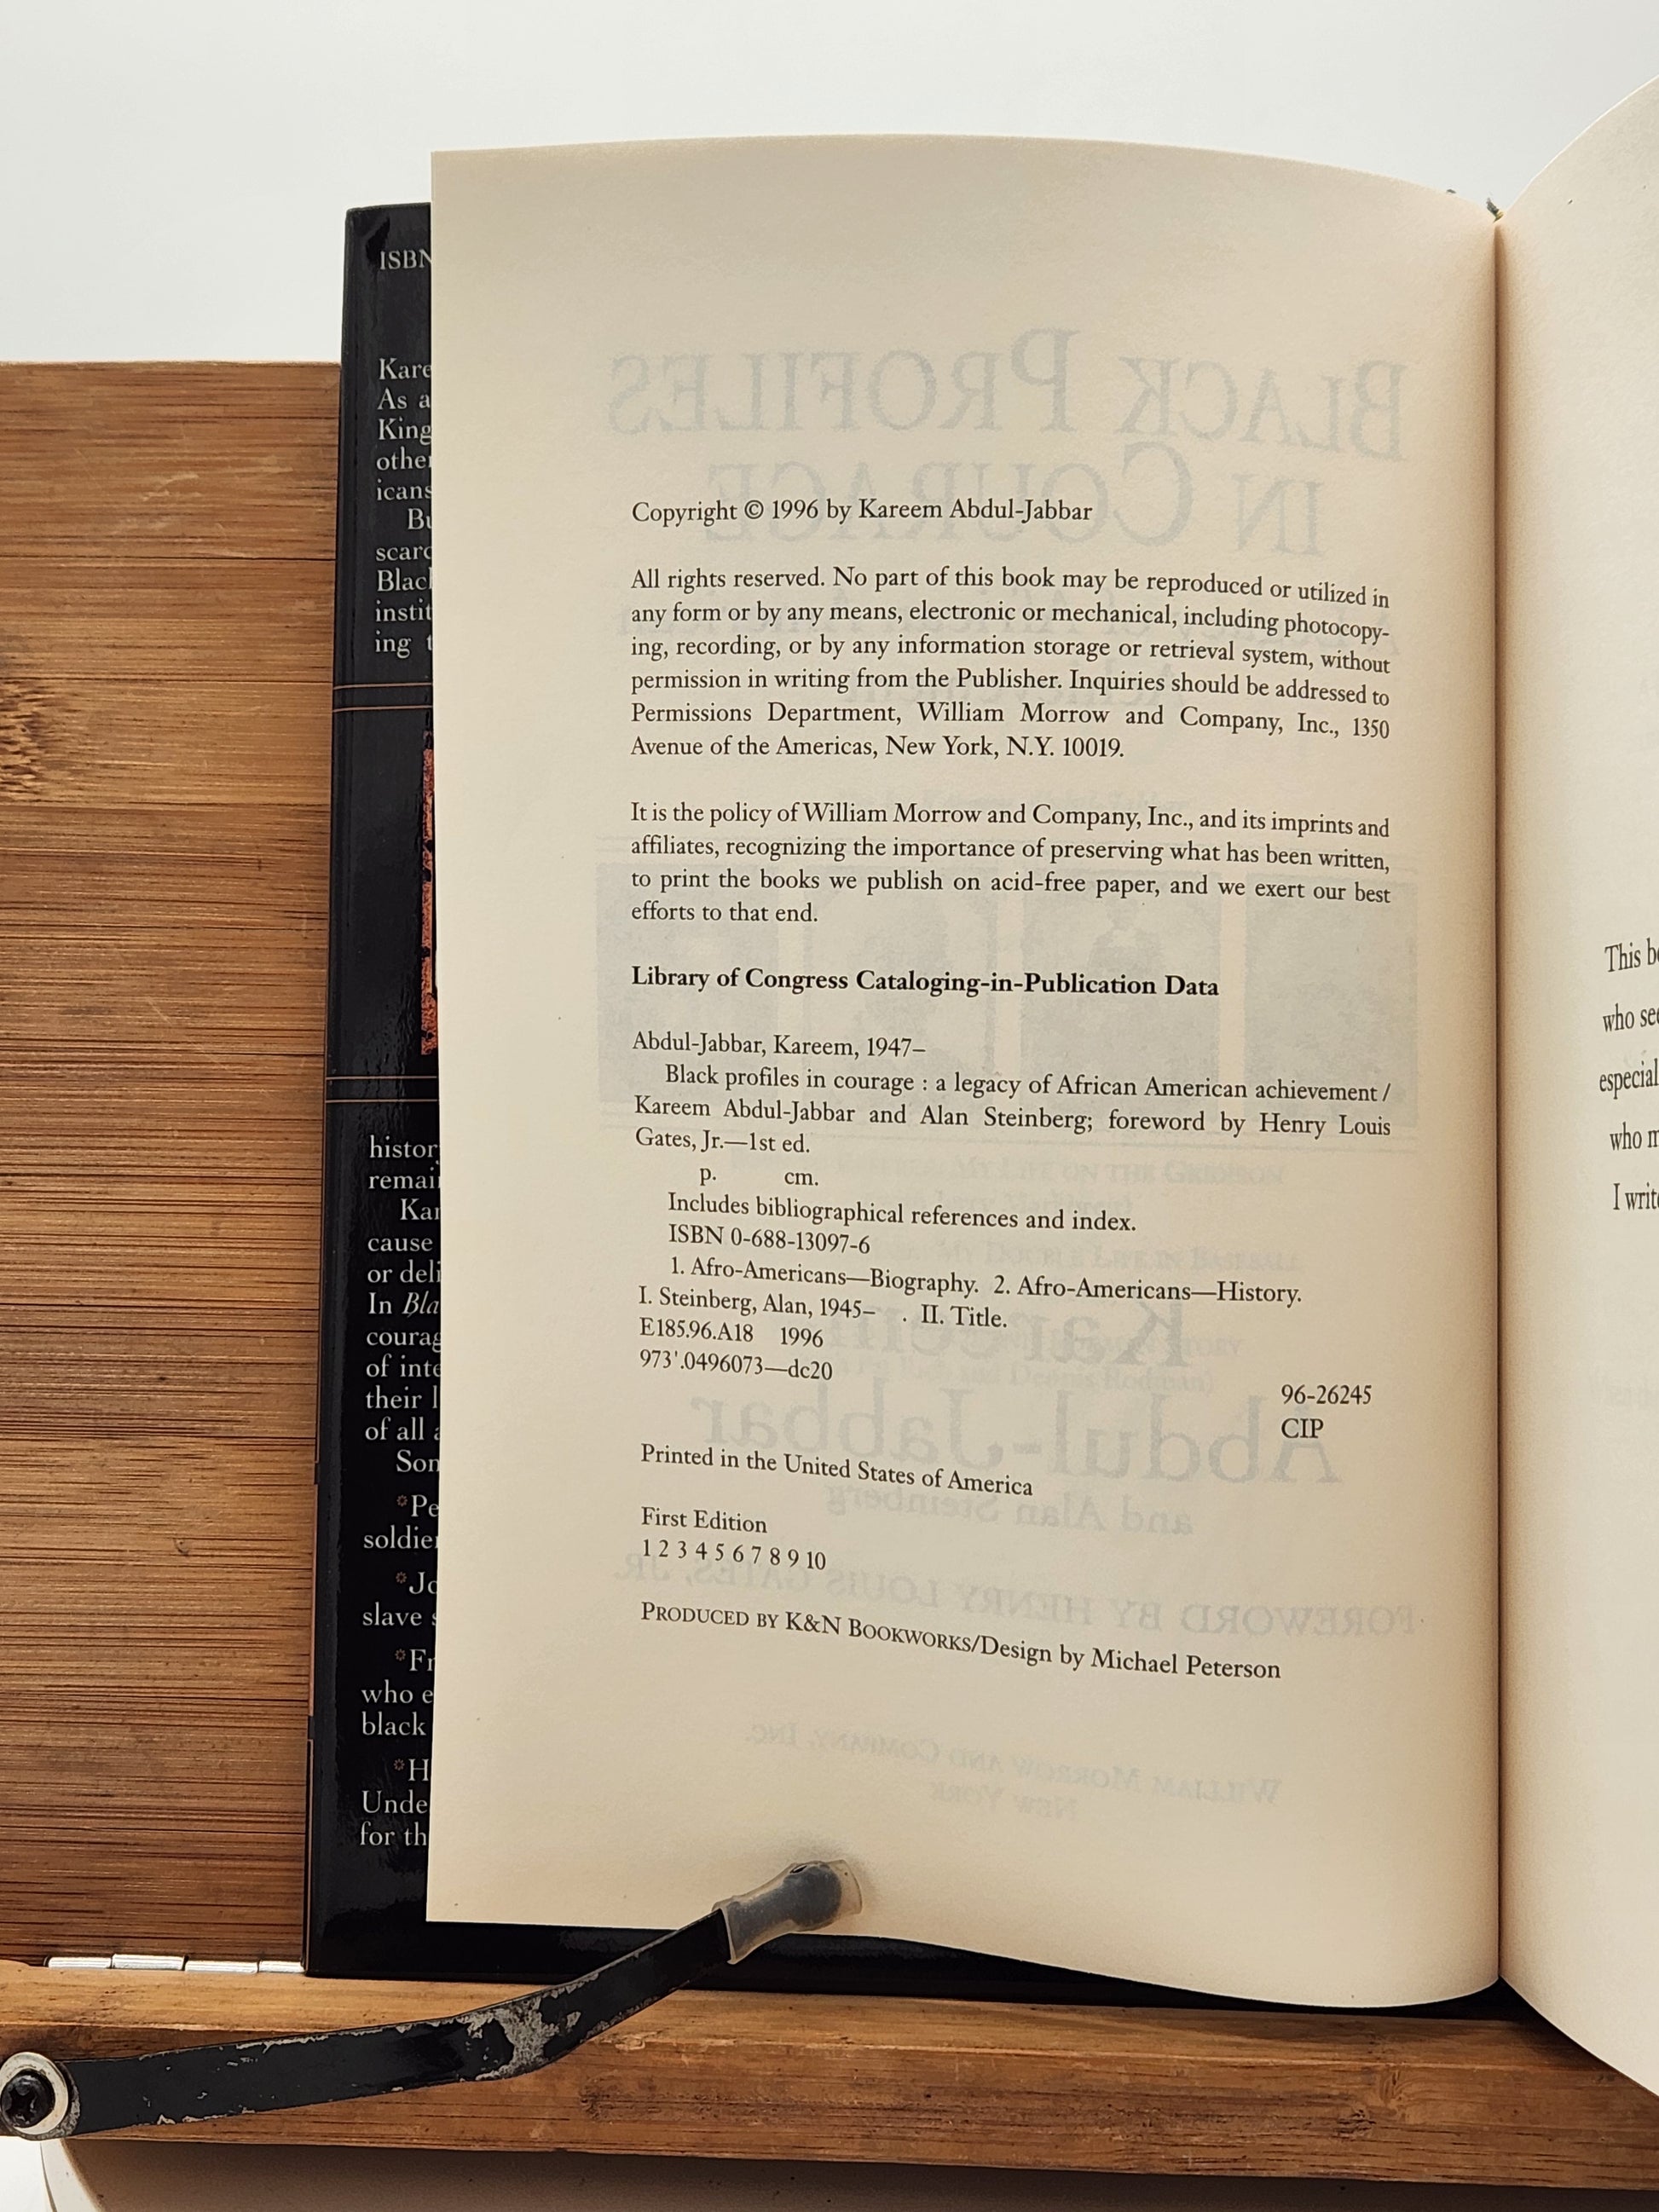 ISBN
Kare
As a
King
other
icans
Bu
scarc
Blacl
instit
ing t
history
remai
Kar
cause
or deli
In Bla
courag
of inte
their l
of all a
Son
*Pe
soldier
*Jo
slave s
*Fr
who e
black
*H
Unde
for th
BLACK PROFILES
IN COURAGE
Copyright © 1996 by Kareem Abdul-Jabbar
All rights reserved. No part of this book may be reproduced or utilized in
any form or by any means, electronic or mechanical, including photocopy-
ing, recording, or by any information storage or retrieval system, without
permission in writing from the Publisher. Inquiries should be addressed to
Permissions Department, William Morrow and Company, Inc., 1350
Avenue of the Americas, New York, N.Y. 10019.
It is the policy of William Morrow and Company, Inc., and its imprints and
affiliates, recognizing the importance of preserving what has been written,
to print the books we publish on acid-free paper, and we exert our best
efforts to that end.
Library of Congress Cataloging-in-Publication Data
Abdul-Jabbar, Kareem, 1947–
Black profiles in courage : a legacy of African American achievement /
Kareem Abdul-Jabbar and Alan Steinberg; foreword by Henry Louis
Gates, Jr.—1st ed.
p. cm.
Includes bibliographical references and index.
ISBN 0-688-13097-6
1. Afro-Americans—Biography. 2. Afro-Americans—History.
I. Steinberg, Alan, 1945– . II. Title.
E185.96.A18 1996
973'.0496073—dc20
96-26245
CIP
Kareem
Abdul-Jabbar
and Alan Steinberg
Printed in the United States of America
First Edition
1 2 3 4 5 6 7 8 9 10
FOREWORD BY HENRY LOUIS GATES, JR.
PRODUCED BY K&N BOOKWORKS/Design by Michael Peterson
WILLIAM MORROW AND COMPANY, INC.
NEW YORK
This bo
who see
especial
who m
I write